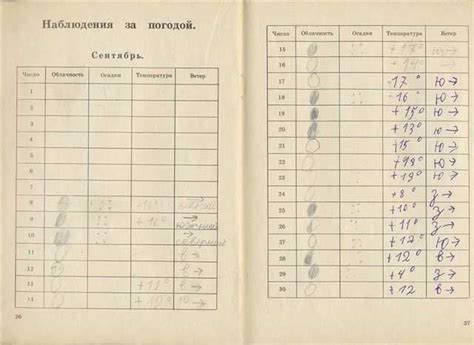 Наблюдения за погодой.
Сентябрь.
Число Облачность Осадки Температура Ветер
1
2
3
4
5
6
7
8
9
10
11 в →
12 в →
13 +11° в →
14 +12° ю →
36
Число Облачность Осадки Температура Ветер
15 +17° ю →
16
17 17° ю →
18 16° ю →
19 +15° ю →
20 +13° ю →
21 +15° ю →
22 ю →
23 ю →
24 +8° з →
25 +10° з →
26 +11° з →
27 +12° ю →
28 +12° в →
29 +4° з →
30 +12 в →
37